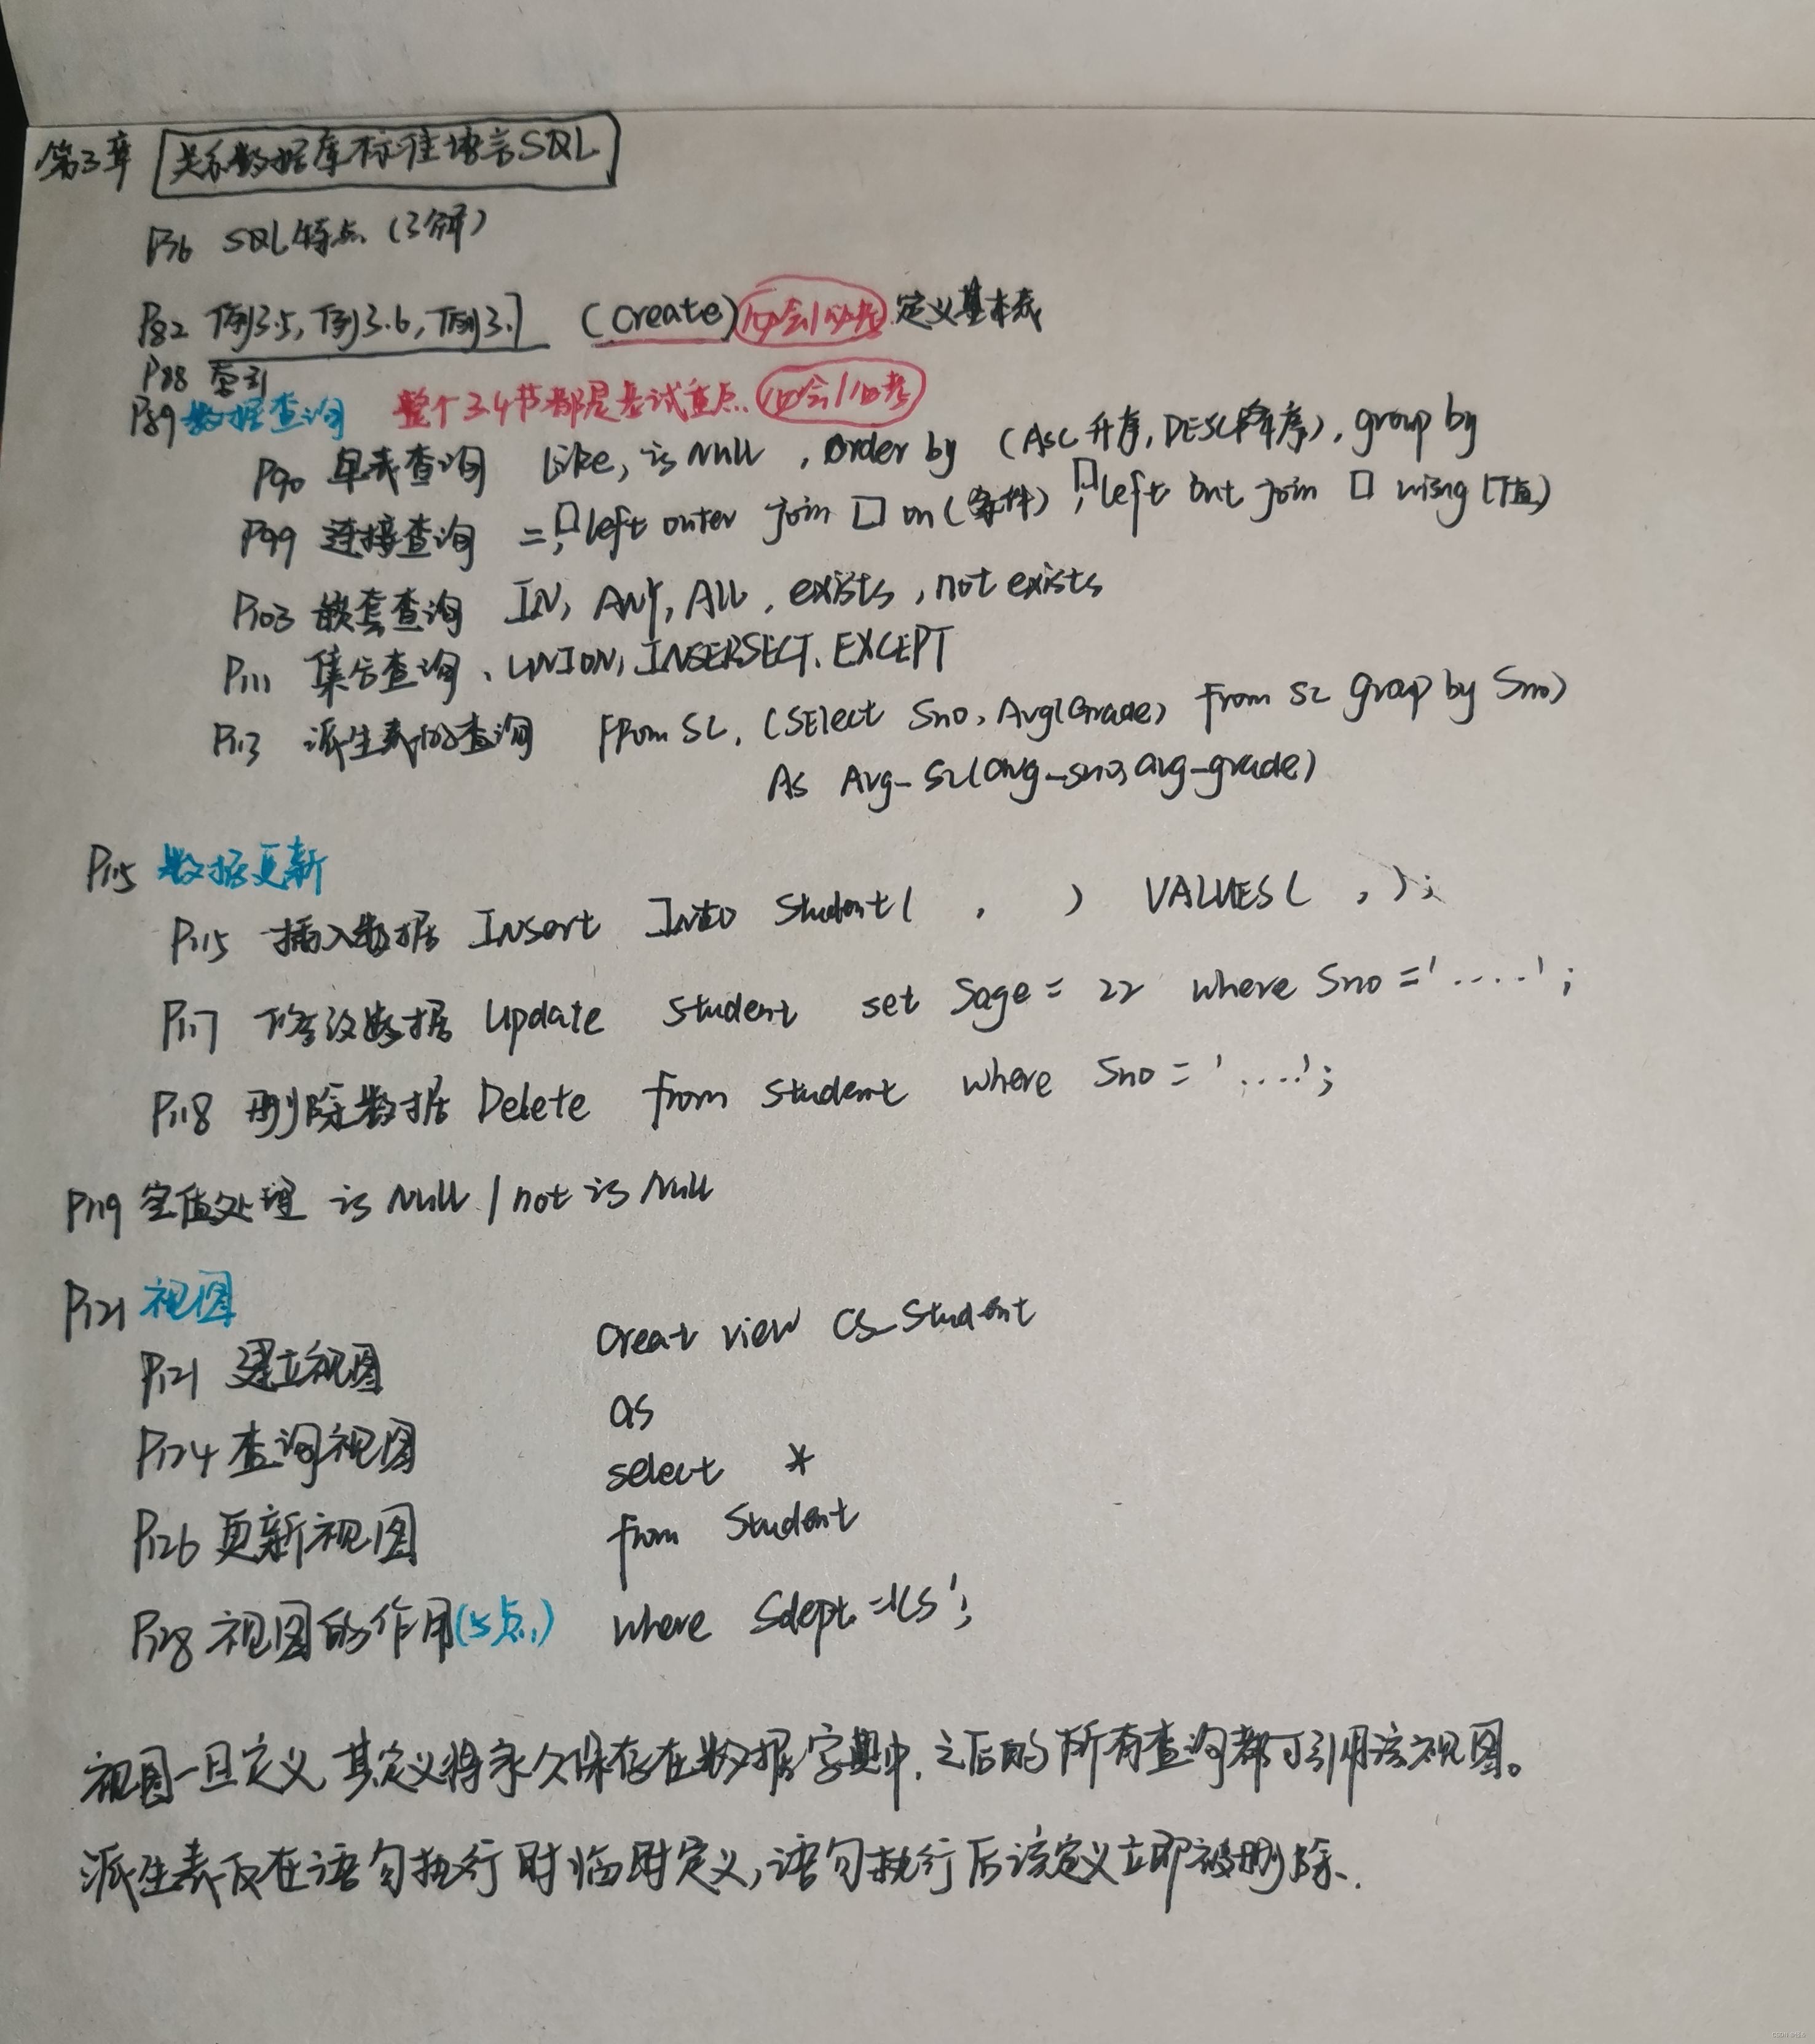 第3章 关系数据库标准语言SQL
P76 SQL特点(了解)
P82 例3.5,例3.6,例3.7 (create) 必会/必考 定义基本表
P88 索引
P89 数据查询 整个3.4节都是考试重点. 必会/必考
P90 单表查询 Like, is Null , Order by (ASC升序,DESC降序), group by
P99 连接查询 =, □left outer join □ on(条件) , □left out join □ using(值)
P103 嵌套查询 IN, ANY, ALL, exists, not exists
P111 集合查询、UNION, INSERSECT, EXCEPT
P113 派生表的查询 From SC, (SElect Sno, Avg(Grade) From SC group by Sno)
As Avg_SC(avg_sno, avg_grade)
P115 数据更新
P115 插入数据 Insert Into Student( , ) VALUES( , );
P117 修改数据 Update Student set Sage = 22 where Sno = '.....';
P118 删除数据 Delete from Student where Sno = '....';
P119 空值处理 is Null / not is Null
P121 视图
P121 建立视图 Creat view CS_Student
as
P124 查询视图 select *
P126 更新视图 from Student
P128 视图的作用(5点) where Sdept='CS';
视图一旦定义,其定义将永久保存在数据字典中,之后的所有查询都可引用该视图。
派生表仅在语句执行时临时定义,语句执行后该定义立即被删除.